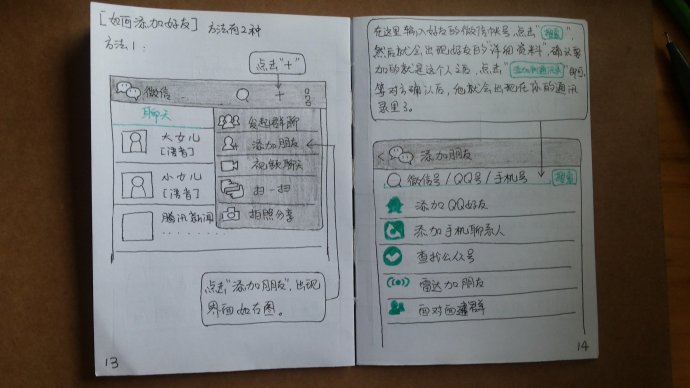 [如何添加好友] 方法有2种
方法1：
点击"+"
微信
聊天
大女儿
[语音]
小女儿
[语音]
腾讯新闻
发起群聊
添加朋友
视频聊天
扫一扫
拍照分享
点击"添加朋友",出现
界面如右图。
13
在这里输入好友的微信帐号,点击"搜索",
然后就会出现好友的详细资料,确认要
加的就是这个人之后,点击"添加到通讯录"即可.
等对方确认后,他就会出现在你的通讯
录里了。
添加朋友
微信号/QQ号/手机号 搜索
添加QQ好友
添加手机联系人
查找公众号
雷达加朋友
面对面建群
14